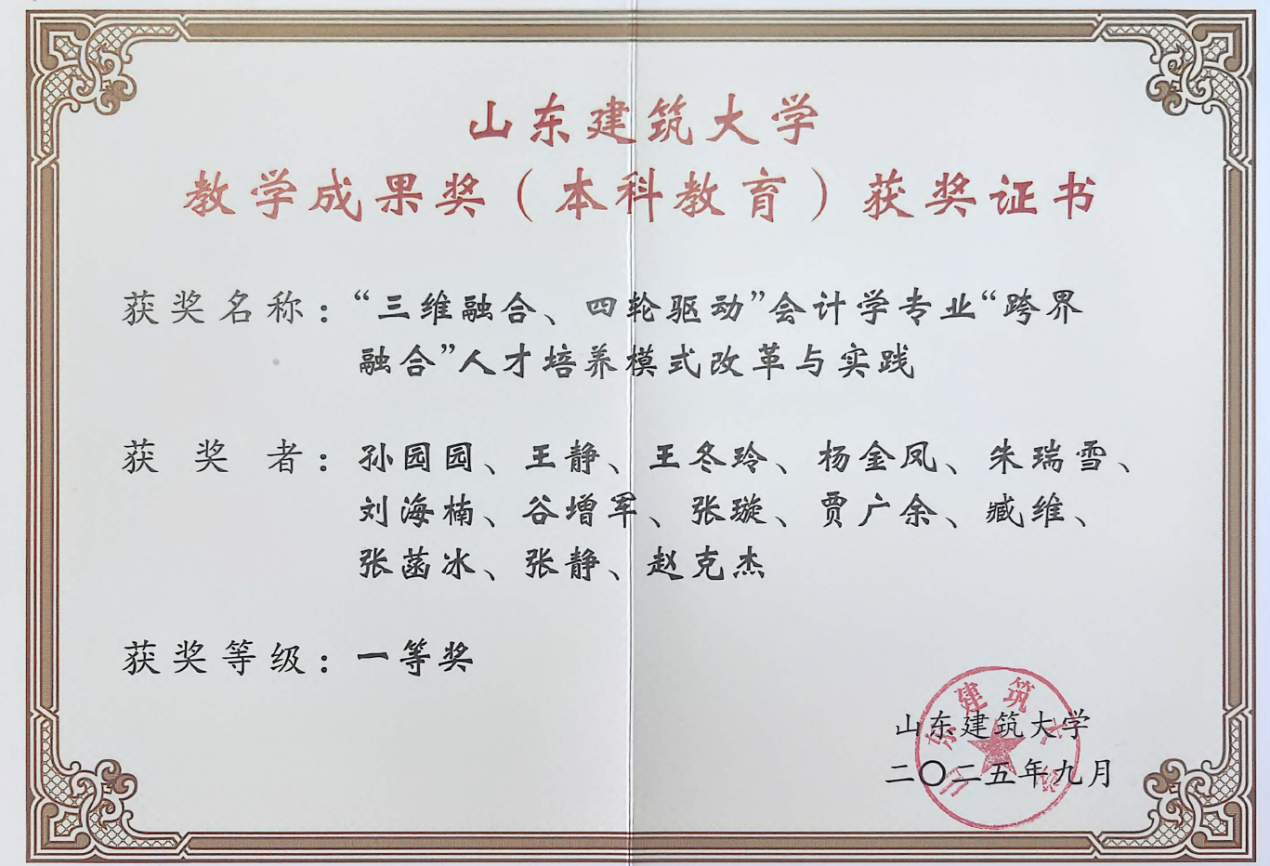 山东建筑大学
教学成果奖（本科教育）获奖证书
获奖名称：“三维融合、四轮驱动”会计学专业“跨界
融合”人才培养模式改革与实践
获奖者：孙园园、王静、王冬玲、杨金凤、朱瑞雪、
刘海楠、谷增军、张璇、贾广余、臧维、
张菡冰、张静、赵克杰
获奖等级：一等奖
山东建筑大学
山东建筑大学
二〇二五年九月